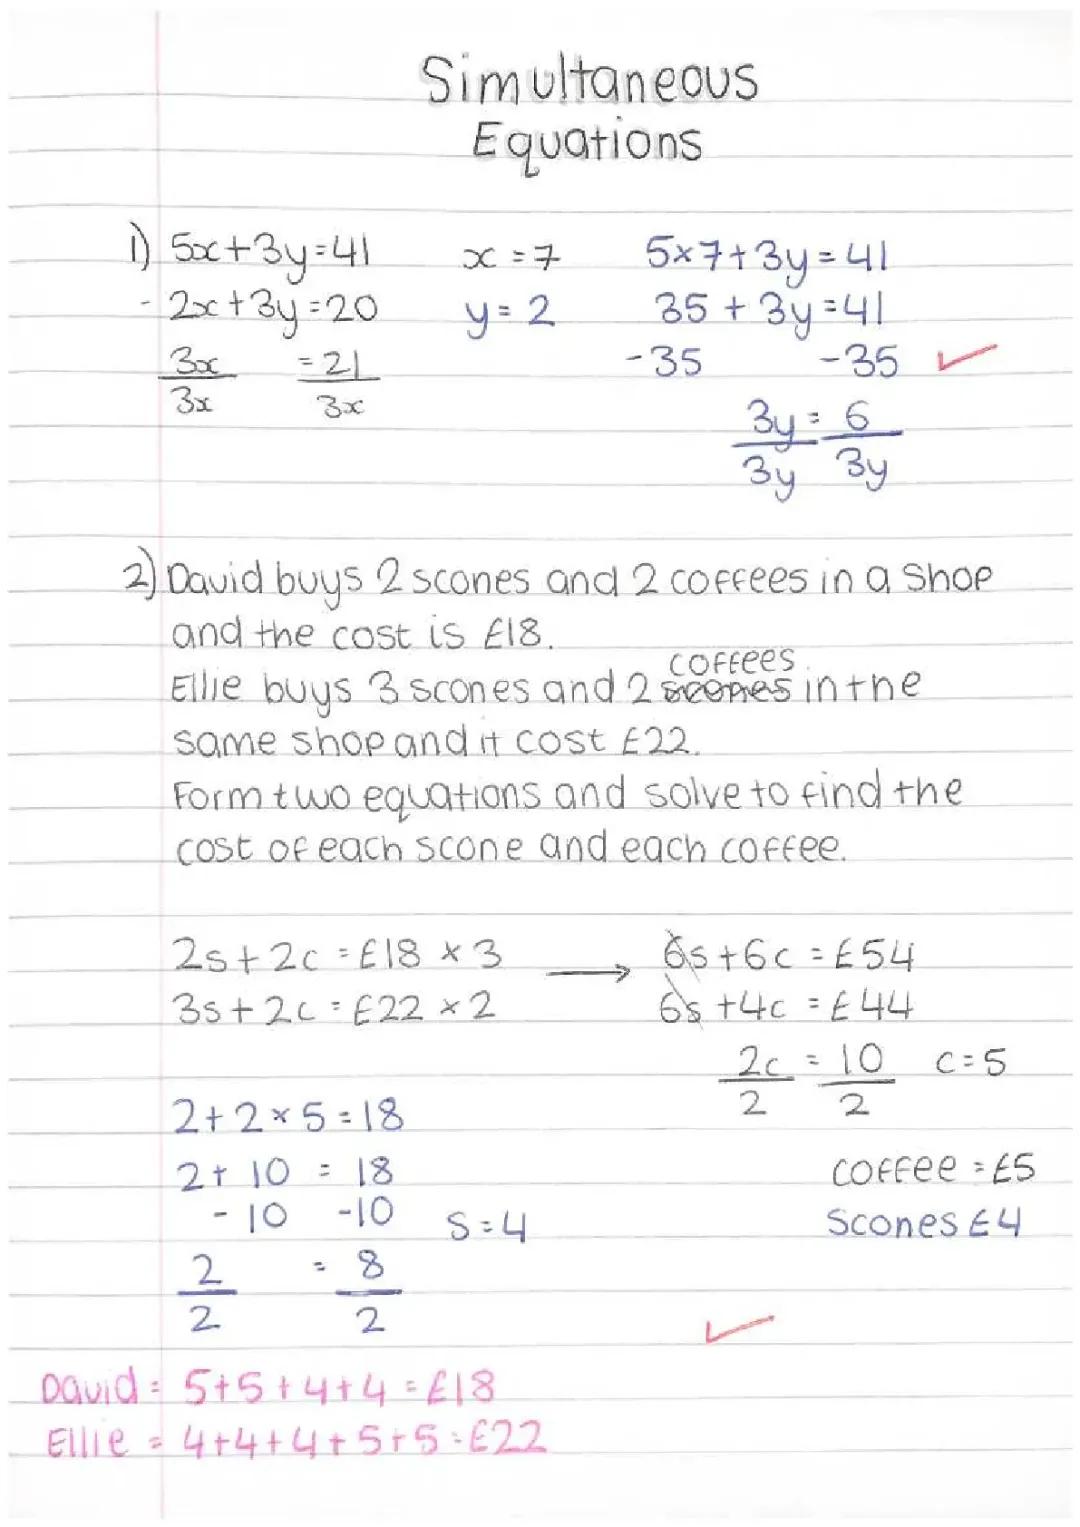 Simultaneous
Equations
1) 5x+3y=41 x=7 5×7+3y=41
- 2x+3y=20 y=2 35+3y=41
3x =21 -35 -35 ✓
3x 3x
3y=6
3y 3y
2) David buys 2 scones and 2 coffees in a shop
and the cost is £18.
coffees
Ellie buys 3 scones and 2 scones in the
same shop and it cost £22.
Form two equations and solve to find the
cost of each scone and each coffee.
2s+2c=£18 ×3 → 6s+6c=£54
3s+2c=£22 ×2 6s+4c=£44
2c=10 c=5
2 2
2+2×5=18
2+10=18 coffee=£5
-10 -10 s=4 Scones £4
2=8
2 2 ✓
David= 5+5+4+4=£18
Ellie= 4+4+4+5+5=£22